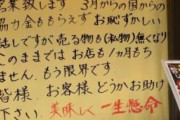 営業致します 3月からの国からの
協力金ももらえず お恥ずかしい
話しですが売る物も(私物)無くなり
このままでは お店も1ヵ月もち
ません。もう限界です
皆様、お客様どうかお助け
下さい。美味しく一生懸命